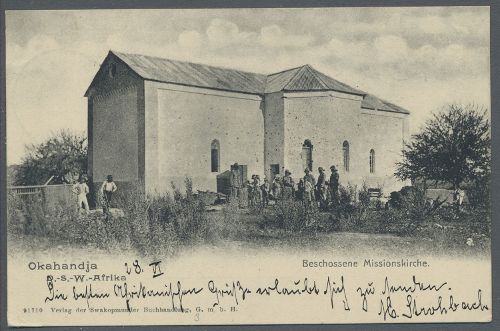 Okahandja
D.-S.-W.-Afrika
28. VI
Beschossene Missionskirche.
Die besten Afrikanischen Grüße erlaubt sich zu senden.
Strohbach
91710 Verlag der Swakopmunder Buchhandlung, G. m. b. H.